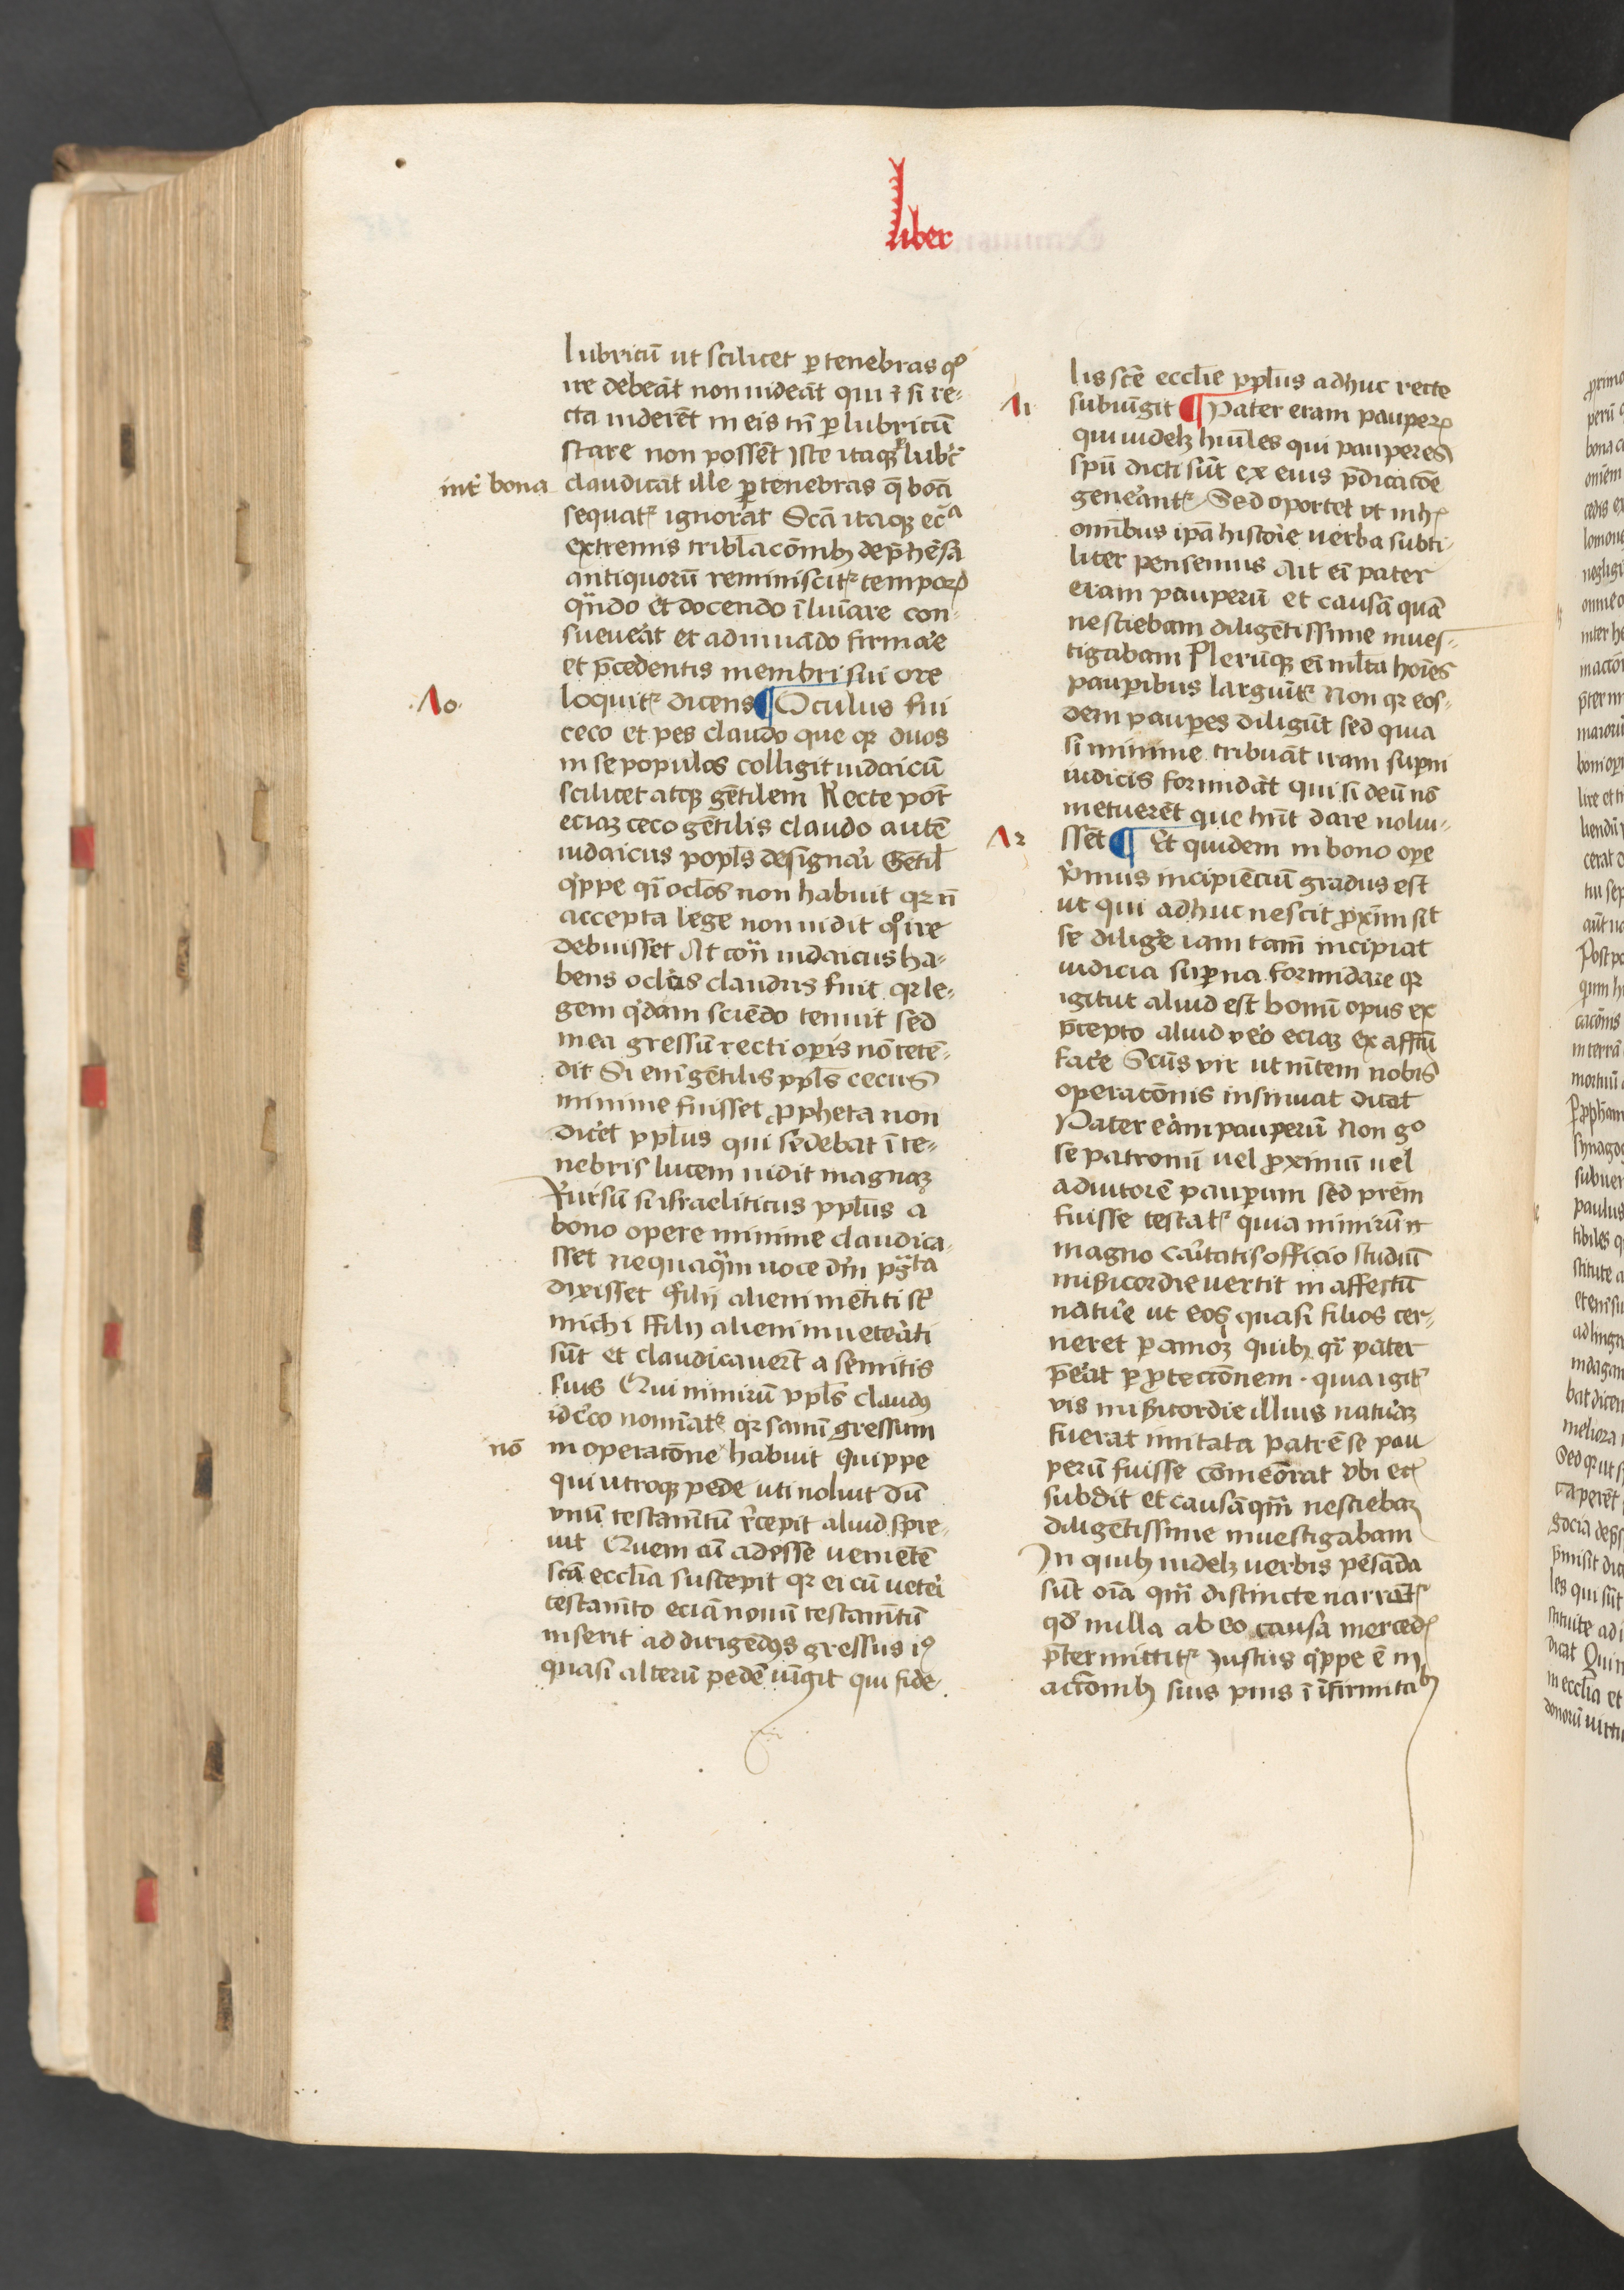 liber
lubricū ut scilicet p tenebras qͦ
ire debeāt non uideāt qui ⁊ si re-
cta uiderēt in eis tn̄ p lubricū
stare non possēt Iste itaqꝫ
int̄ bona
claudicat ille p tenebras q̄ bōa
sequatr̄ ignorat Scā itaqꝫ ecͣ
extremis tribl̄acōnibꝫ dep̄hēsa
antiquorū reminiscitr̄ tempoꝝ
qn̄do et docendo īluīare con-
sueuēat et adiuuādo firmāe
et p̄cedentis membri sui ore
.10.
loquitr̄ dicens ¶ Oculus fui
ceco et pes claudo que qꝛ duos
in se populos colligit iudaicū
scilicet atqꝫ gētilem Recte pōt
eciaꝫ ceco gētilis claudo autē
iudaicus popl̄s designāi Gētil̄
qͥppe qͥ ocl̄os non habuit qꝛ n̄
accepta lege non uidit qͦ ire
debuisset At coū iudaicus ha-
bens oclōs claudus fuit qꝛ le-
gem qͥdam sciēdo tenuit sed
in ea gressū recti opis nō tetē-
dit Si enī gētilis ppl̄s cecus
minime fuisset ppheta non
dicēt ppl̄us qui sedebat ī te-
nebris lucem uidit magnaꝫ
Rursū si israeliticus ppl̄us a
bono opere minime claudica-
sset nequaqͣm uoce dn̄i
dixisset filij alieni mētiti st̄
michi ffilij alieni inuetēati
sūt et claudicauerūt a semitis
suis Qui nimirū ppl̄s claudꝰ
idcͥco nomīatr̄ qꝛ sanū gressum
nō
in operatōne habuit Quippe
qui utroqꝫ pede uti noluit dū
vnū testam̄tū rͤcepit aliud spre-
uit Quem cū adesse uenietē
scā eccl̄ia suscepit qꝛ ei cū uetēi
testam̄to eciā nouū testam̄tū
inserit ad dirigēdos gressus iꝰ
quasi alterū pedē iūgit qui fide-
lis scē eccl̄ie ppl̄us adhuc recte
11
subiūgit ¶ Pater eram pauperꝝ
qui uidelꝫ hūiles qui pauperes
spū dicti sūt ex eius p̄dicacōe
genēantr̄ Sed oportet ut in hꝫ
omībus ipā historie uerba subti-
liter pensemus Ait eī pater
eram pauperū et causā quā
nesciebam diligētissime inues-
tigabam Plerūqꝫ eī ml̄ta hoīes
paupibus larguītr̄ Non qꝛ eos-
dem paupes diligūt sed quia
si minime tribuāt iram supni
iudicis formidāt qui si deū nō
metuerēt que hn̄t dare nolui-
12
ssēt ¶ Et quidem in bono ope
pͥmus incipiēciū gradus est
ut qui adhuc nescit pxīm sit
se diligē iam tam̄ incipiat
iudicia supna formidare qꝛ
igitur aliud est bonū opus ex
p̄cepto aliud vēo eciaꝫ ex affc̄u
facē Scūs vir ut mn̄tem nobis
operacōnis insinuat dicat
Pater eram pauperū Non gͦ
se patronū uel pximū uel
adiutorē paupum sed prēm
fuisse testatr̄ quia nimirū
magno cāitatis officio studiū
mīcordie uertit in affectū
natūe ut eos quasi filios cer-
neret p amoꝫ quibꝫ qͥ pater
p̄eāt p ptecionem . quia igitr̄
vis mīcordie illius natūaꝫ
fuerat imitata patrē se pau
perū fuisse comēorat vbi et
subdit et causā qm̄ nesciebaꝫ
diligētissime inuestigabam
In quibꝫ uidelꝫ uerbis pēsāda
sūt oīa qm̄ distincte narrātr̄
qd̄ nulla ab eo causa merced
p̄termittitr̄ Iustus qͥppe ē in
actōnibꝫ suis pius ī īfirmitabꝫ